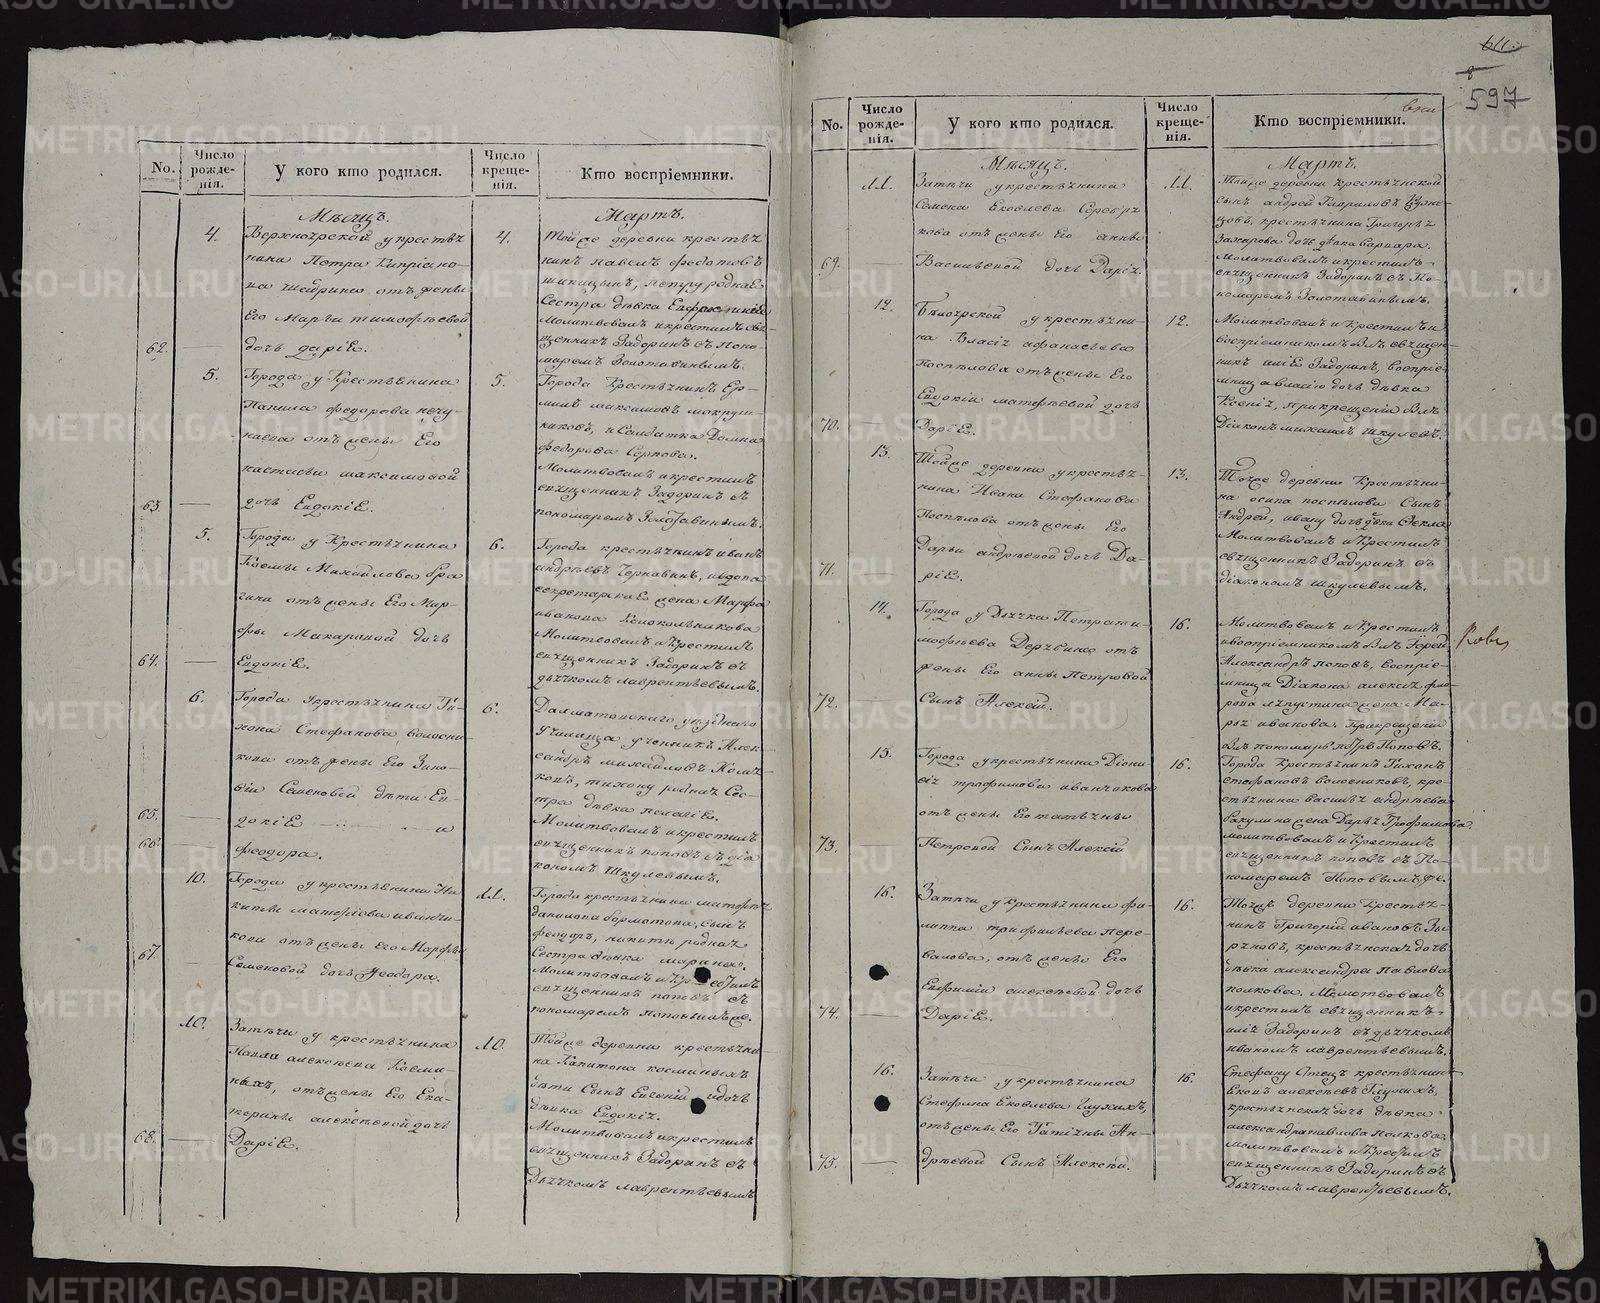 No.
Число рожде-нія.
У кого кто родился.
Число креще-нія.
Кто воспріемники.
Мѣсяцъ.
Мартъ.
4.
Верхноярской у крестья
нина Петра Кипріано-
ва Шадрина отъ жены
Его Марьи тимофѣевой
62.
дочь дарiЕ.
4.
Той же деревни крестья
нинъ павелъ федотовъ
шипицынъ, петру родная
Сестра дѣвка
Молитвовалъ и крестилъ свя-
щенникъ Задоринъ съ поно-
маремъ Золотавинымъ.
5.
Города у Крестьянина
Панила федорова
отъ жены Его
настасьи максимовой
63.
дочь ЕвдокiЕ.
5.
Города Крестьянинъ Ер-
милъ максимовъ мокруш-
никовъ, и Солдатка Домна
федорова Серкова.
Молитвовалъ и крестилъ
священникъ Задоринъ съ
пономаремъ Золотавинымъ.
5.
Города у Крестьянина
Козмы Михайлова бра
гина отъ жены Его Мар-
фы Макаровой дочь
64.
ЕвдокiЕ.
6.
Города крестьянинъ иванъ
андрѣевъ Чернавинъ, и вдова
секретарская жена Марфа
иванова Колокольникова
Молитвовалъ и Крестилъ
священникъ Задоринъ съ
дьячкомъ лаврентьевымъ.
6.
Города У крестьянина Ти-
хона Стефанова волосни-
кова отъ жены Его Зино-
віи Семеновой дѣти Ев-
65.
докiЕ и
66.
феодора.
6.
Далматовскаго уѣзднаго
Училища ученикъ Алек-
сандръ михайловъ
тихону родная Сес-
тра дѣвка пелагіЕ.
Молитвовалъ и крестилъ
священникъ поповъ съ діа
кономъ Шкулевымъ.
10.
Города у крестьянина Ни
киты матфѣева иванчи-
кова отъ жены Его Марфы
67.
Семеновой дочь Феодора.
11.
Города крестьянина матфея
данилова бормотова, сынъ
феодоръ, никиты родная
Сестра дѣвка марина.
Молитвовалъ и Крестилъ
священникъ поповъ съ
пономаремъ поповымъже.
10.
Затечи у крестьянина
Павла алексѣева Козми-
ныхъ, отъ жены Его Ека-
терины алексѣевой дочь
68.
ДаріЕ.
10.
Тойже деревни крестьяни
на Капитона косминыхъ
дѣти Сынъ Евгеній и дочь
дѣвка Евдокія.
Молитвовалъ и крестилъ
священникъ Задоринъ съ
Дьячкомъ лаврентьевымъ
611.
597
No.
Число рожде-нія.
У кого кто родился.
Число креще-нія.
Кто воспріемники.
Мѣсяцъ.
Мартъ.
11.
Затечи у крестьянина
Семена Яковлева Серебря
кова отъ жены Его анны
69.
Васильевой дочь Дарія.
11.
Тойже деревни крестьянской
сынъ андрей Гавриловъ Кузне-
цовъ, крестьянина Григорья
Захарова дочь дѣвка варвара.
Молитвовалъ и крестилъ
священникъ Задоринъ съ По-
номаремъ Золотавинымъ.
12.
Бѣлоярской у крестьяни-
на Власія афанасьева
Поспѣлова отъ жены Его
Евдокіи матфѣевой дочь
70.
ДаріЕ.
12.
Молитвовалъ и Крестилъ и
воспріемникомъ былъ священ-
никъ Задоринъ, воспріе-
мница власію дочь дѣвка
Ксенія, при крещеніи былъ
Діаконъ михаилъ Шкулевъ.
13.
Тойже деревни у крестья-
нина Ивана Стефанова
Поспѣлова отъ жены Его
Дарьи андрѣевой дочь Да-
71.
ріЕ.
13.
Тояже деревни Крестьяни-
на осипа поспѣлова Сынъ
Андрей, ивану дочь дѣвка Фекла
Молитвовалъ и Крестилъ
священникъ Задоринъ съ
діакономъ Шкулевымъ.
14.
Города у Дьячка Петра ти-
мофѣева Дерябина отъ
жены Его анны Петровой
72.
Сынъ Алексій.
16.
Молитвовалъ и Крестилъ
и воспріемникомъ былъ Іерей
Александръ поповъ, воспріе-
мница Діакона алексія фло-
рова жена Ма-
рья иванова. При крещеніи
былъ пономарь петръ Поповъ.
15.
Города у крестьянина Діони-
сія трофимова иванчикова
отъ жены Его татьяны
73.
Петровой Сынъ Алексій
16.
Города Крестьянинъ Тихонъ
стефановъ волосниковъ, кре-
стьянина василья андрѣева
жена Дарья Трофимова
молитвовалъ и Крестилъ
священникъ поповъ съ По-
номаремъ Поповымъ же.
16.
Затечи у крестьянина фи-
липпа трифильева пере-
валова, отъ жены Его
Евфиміи алексѣевой дочь
74.
ДаріЕ.
16.
Тояже деревни Крестья-
нинъ Григорій ивановъ Зы-
ряновъ, крестьянская дочь
дѣвка александра павлова
волкова. Молитвовалъ
и крестилъ священникъ
Задоринъ съ дьячкомъ
иваномъ лаврентьевымъ.
16.
Затечи у крестьянина
Стефана Яковлева Глухихъ,
отъ жены Его Татіаны Ан-
75.
дрѣевой Сынъ Алексѣй.
16.
Стефану Отецъ крестьянинъ
Яковъ алексѣевъ Глухихъ,
крестьянская дочь дѣвка
александра павлова волкова
молитвовалъ и Крестилъ
священникъ Задоринъ съ
Дьячкомъ лаврентьевымъ.
METRIKI.GASO-URAL.RU